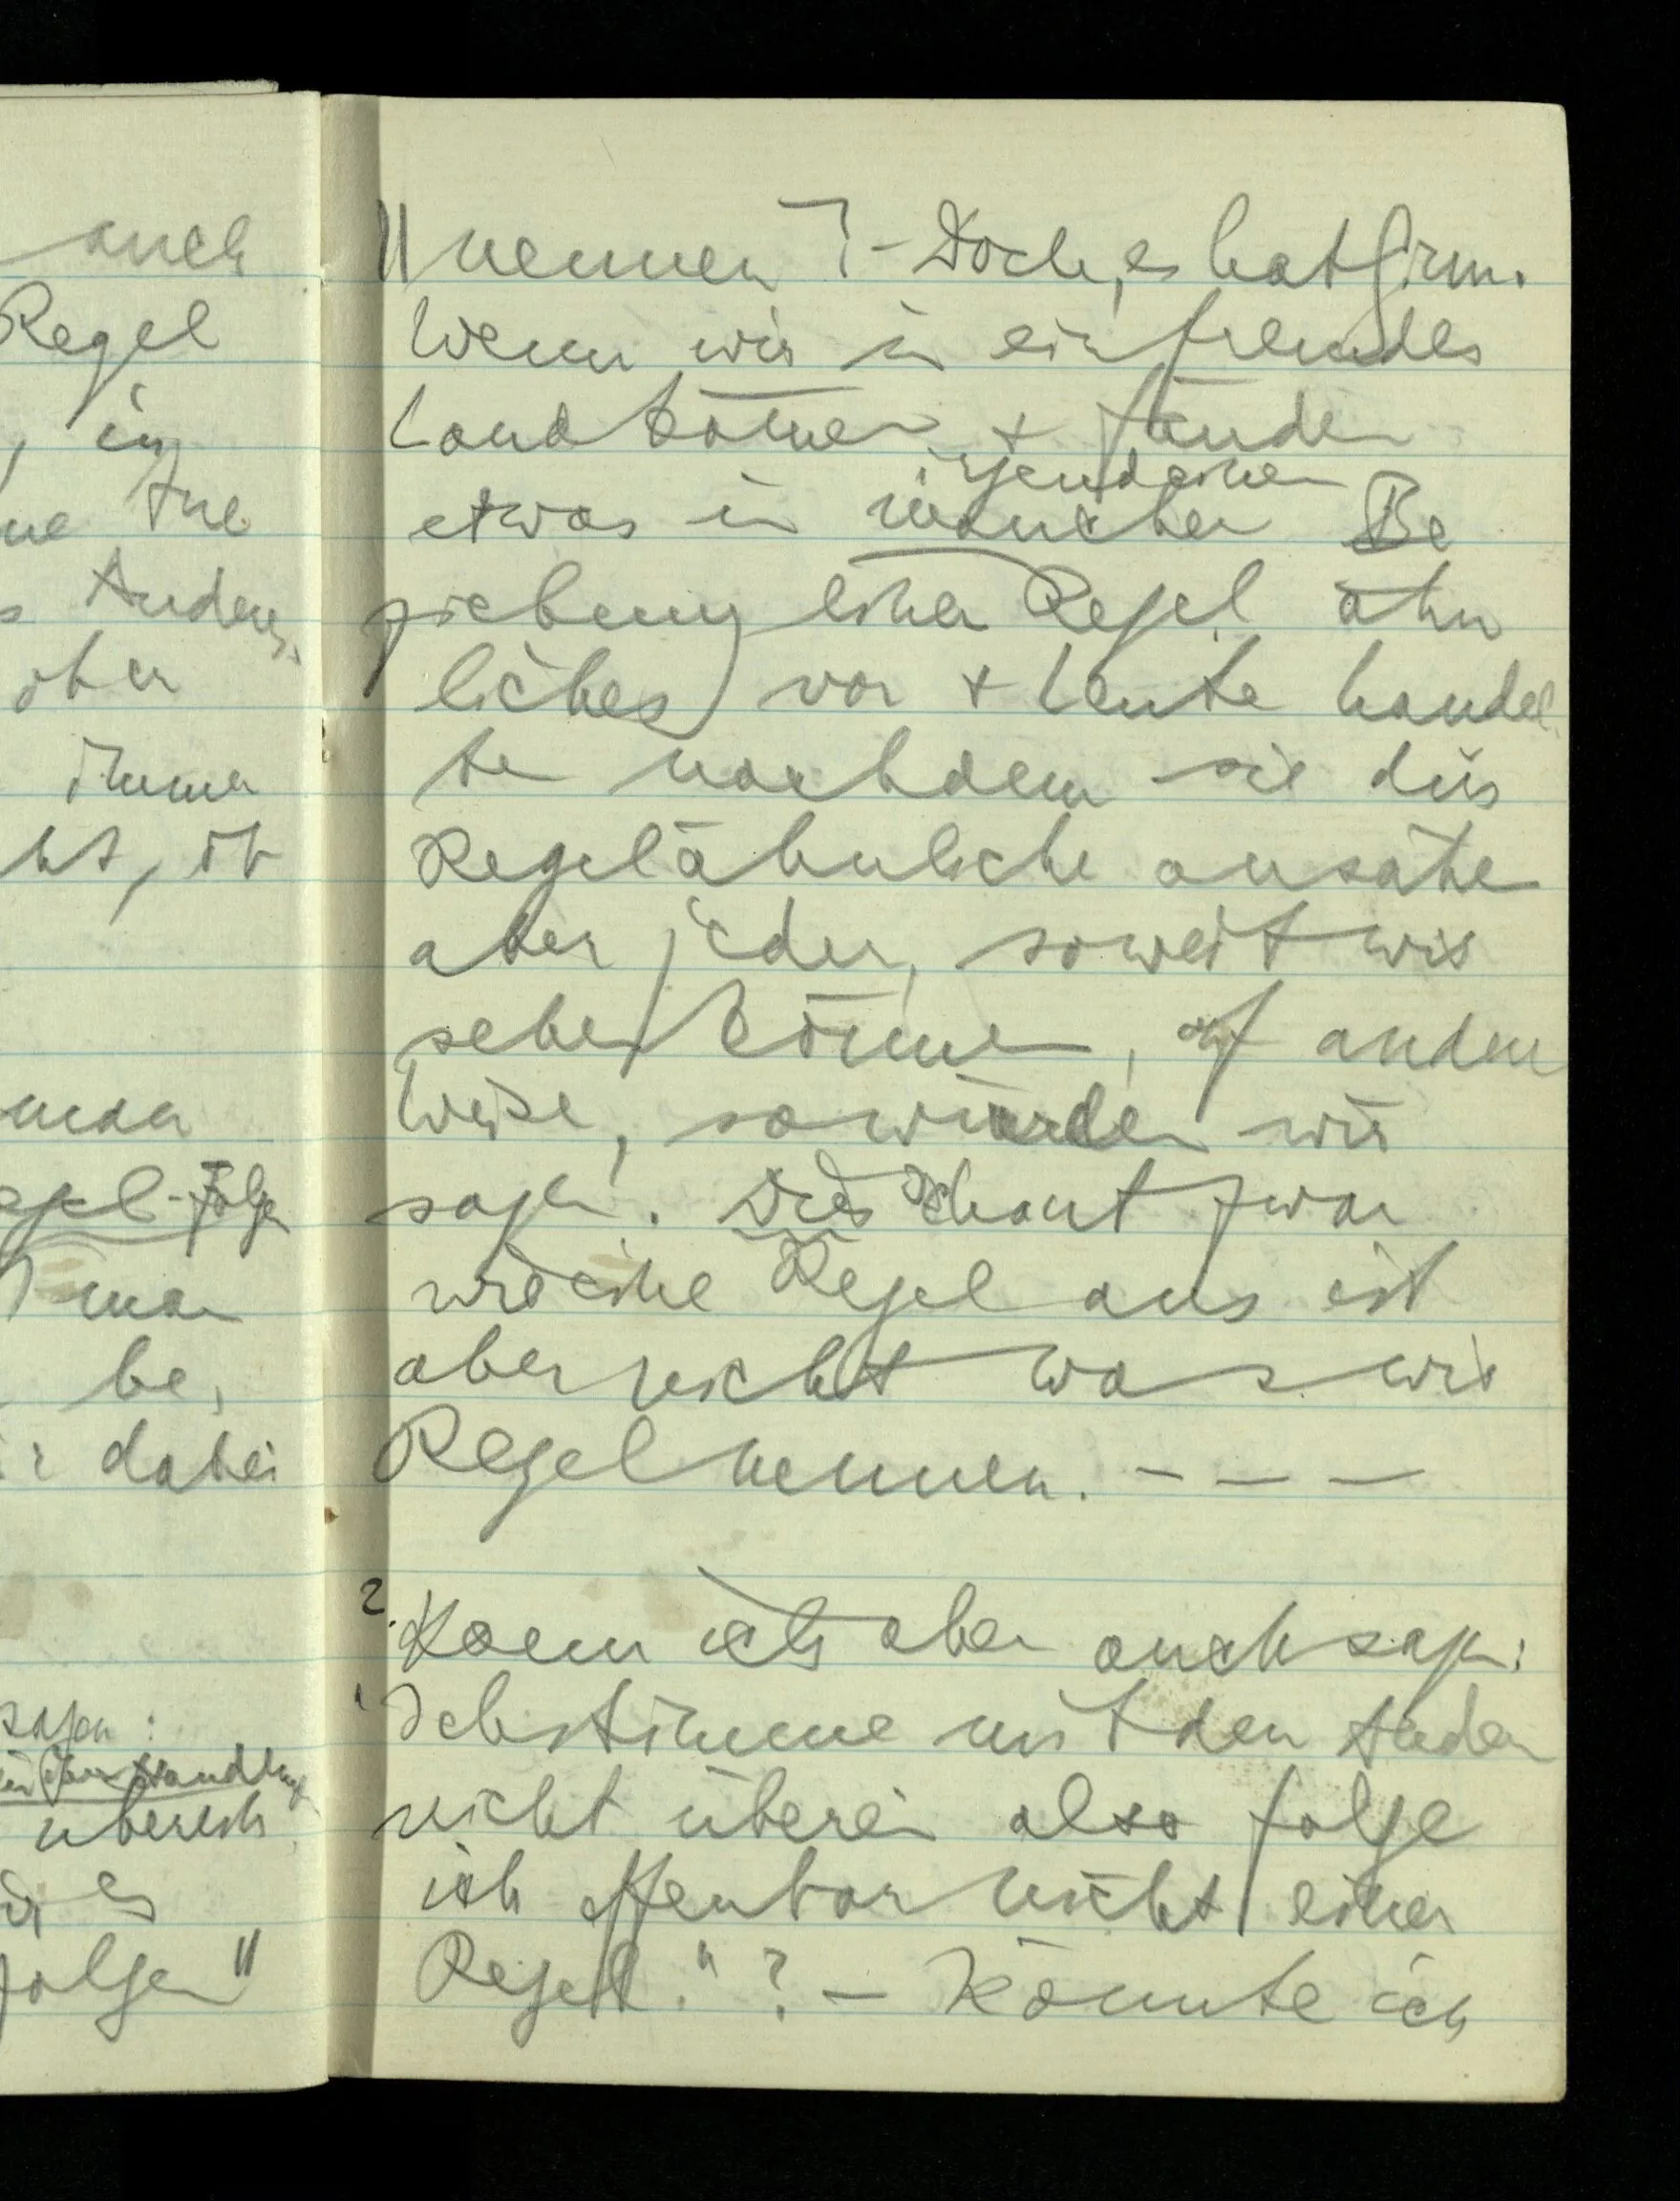 auch
Regel
, in
ne Are
s Anders
ober
immer
ht, ob
man
egel-folge
man
be,
dabei
sagen:
in den Handlung
überein
es
folgen"
nennen? – Doch, es hat Sinn.
Wenn wir in ein fremdes
Land kämen & fänden
irgendeiner
etwas in mancher Be
ziehung einer Regel ähn
liches vor & Leute handel
ten nachdem sie dies
Regelähnliche ansähen
aber jeder, soweit wir
sehen können, auf andere
Weise, so würden wir
sagen: Dies schaut zwar
wie eine Regel aus ist
aber nicht was wir
Regel nennen. – – –
2.
Kann ich aber auch sagen:
"Ich stimme mit den Andern
nicht überein also folge
ich offenbar nicht einer
Regel."? – Könnte ich